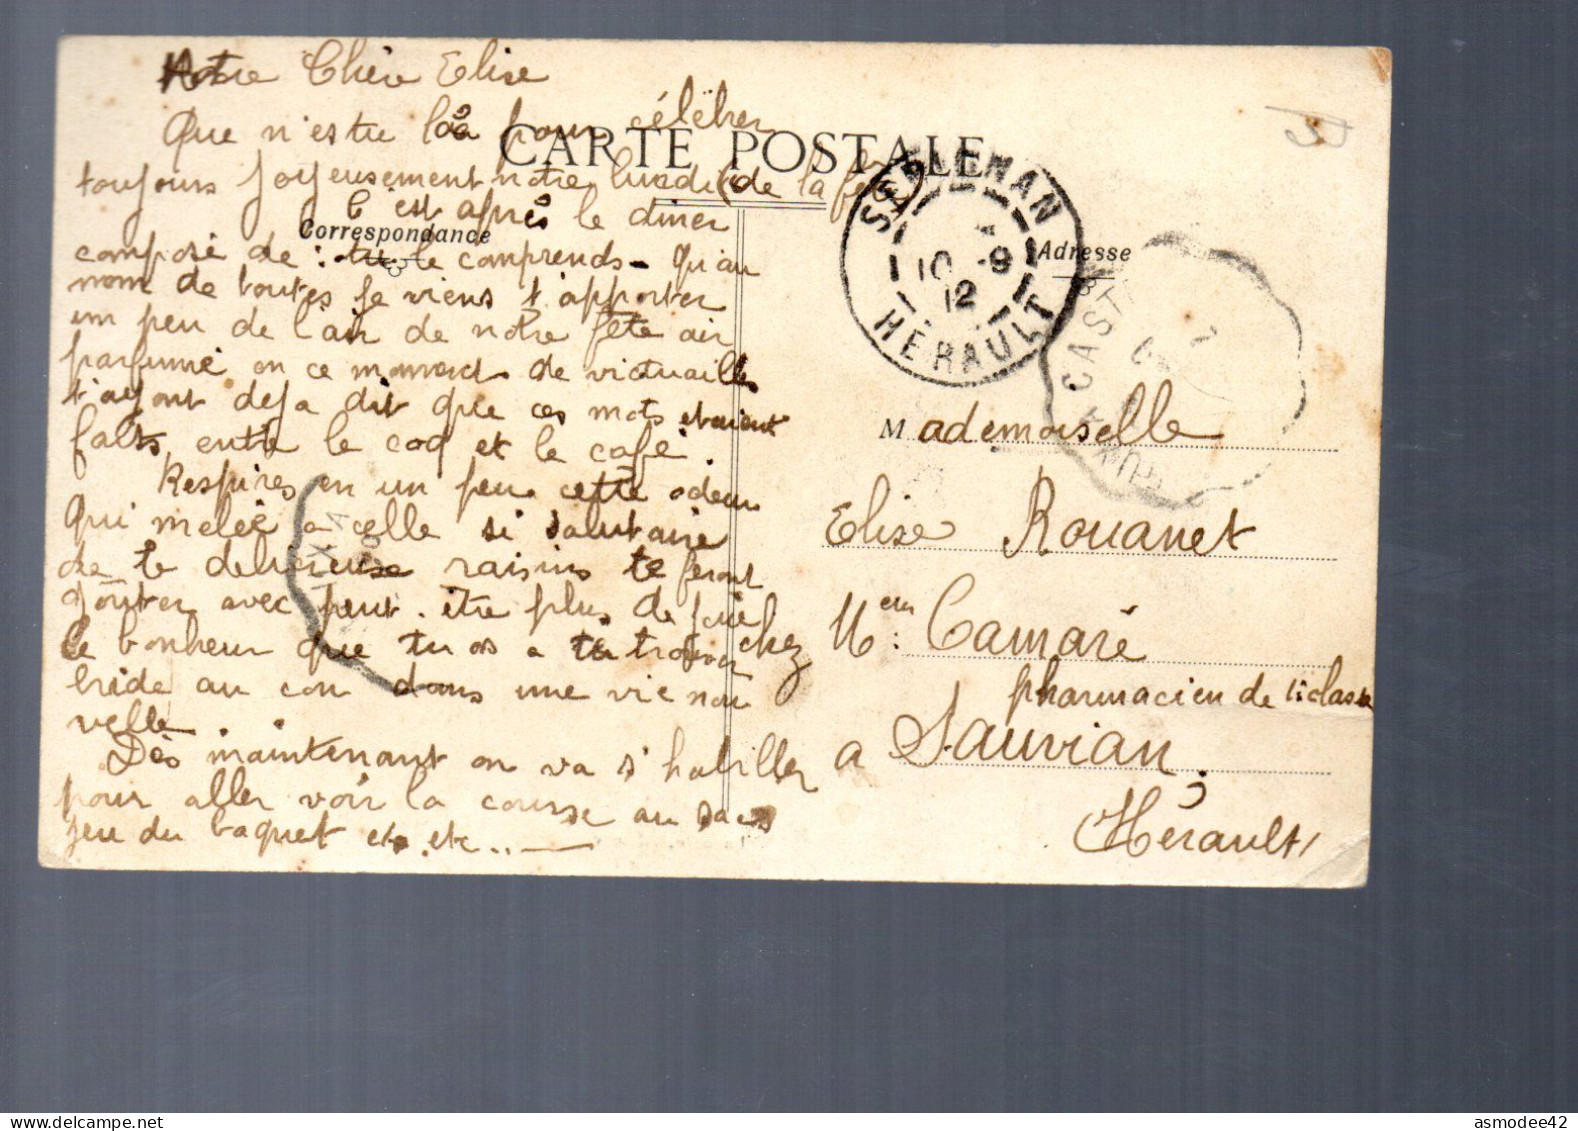 Notre Chère Elise
Que n'es tu là pour célébrer
CARTE POSTALE
toujours joyeusement notre lundi (de la fête)
C'est après le diner
Correspondance
composé de : tu le comprends - Qu'au
nom de toutes je viens t'apporter
un peu de l'air de notre fête air
parfumé en ce moment de victuailles
t'ayant deja dit que ces mots etaient
faits entre le coq et le café.
Respires en un peu cette odeur
qui melée a celle si salutaire
de te delicieuse raisins te feront
goûter avec peut-être plus de joie
le bonheur que tu as a te trouver
bride au cou dans une vie nou
velle.
Dès maintenant on va s'habiller
pour aller voir la course au sacs
jeu du baquet etc. etc...
SERIGNAN
10 -9
12
HERAULT
Adresse
CAST
Mademoiselle
Elise Rouanet
chez M : Camaré
pharmacien de 1i classe
a Sauvian.
Hérault
asmodee42